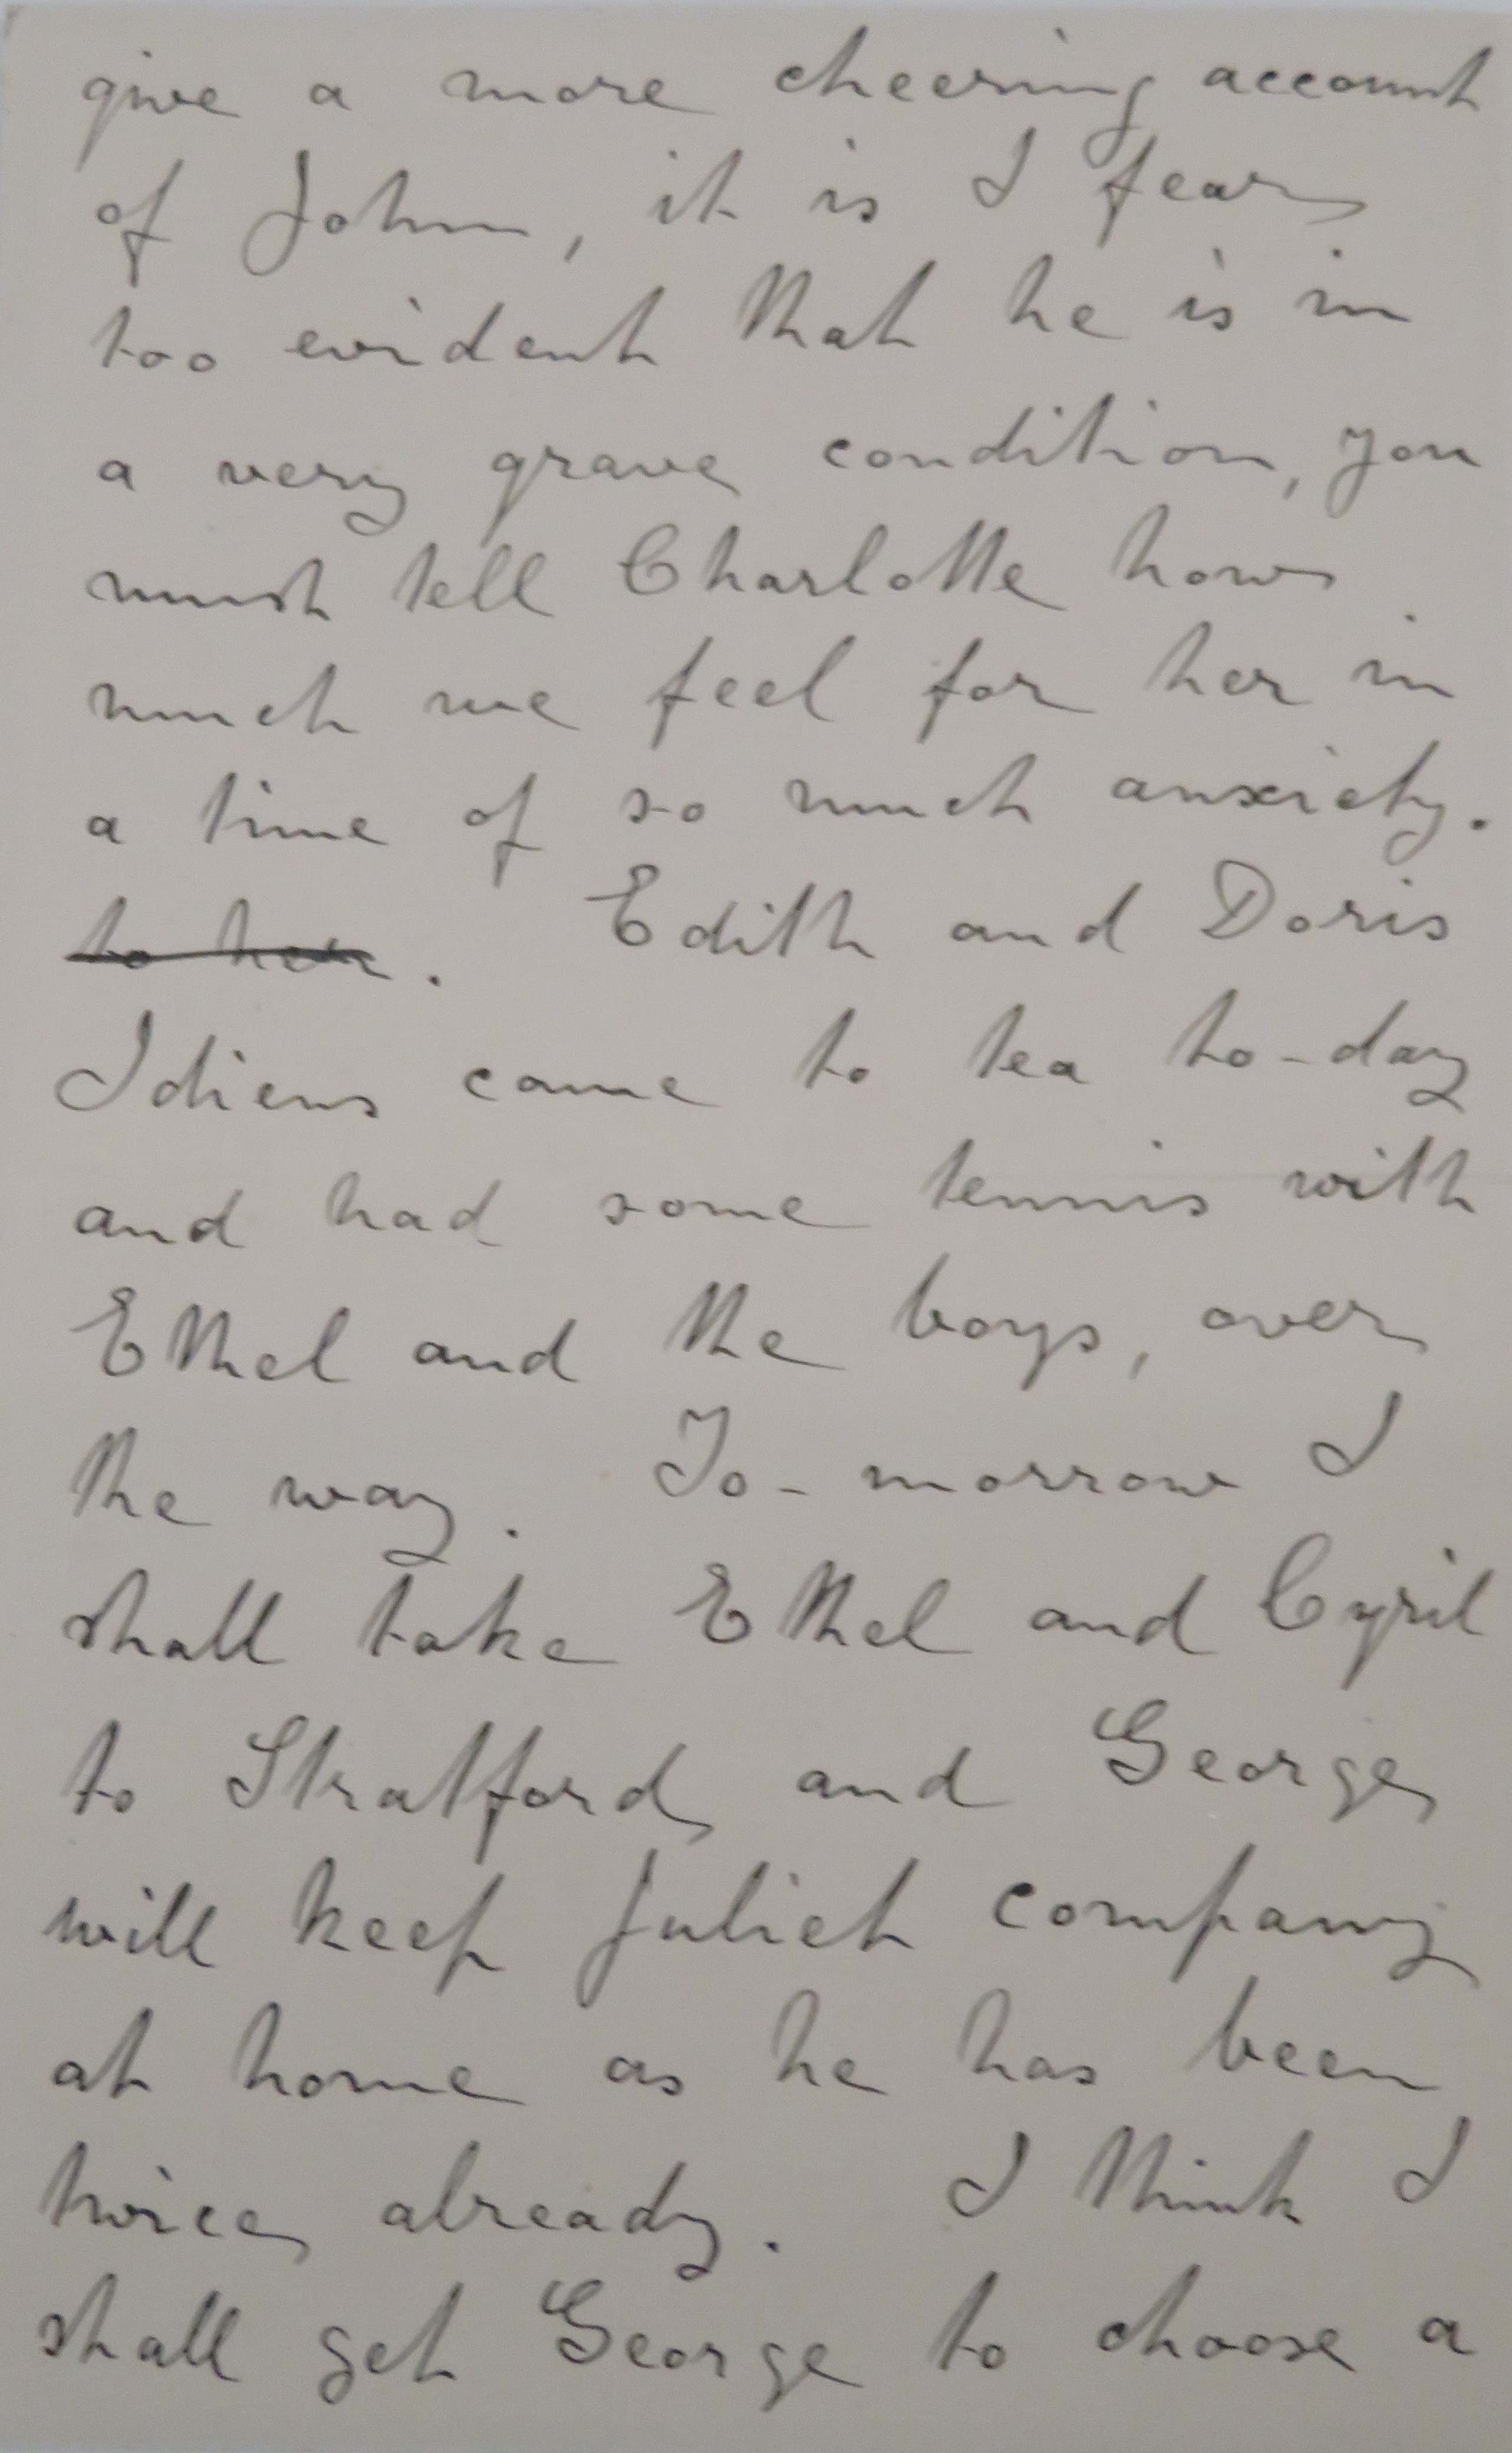 give a more cheering account
of John, it is I fear
too evident that he is in
a very grave condition, you
must tell Charlotte how
much we feel for her in
a time of so much anxiety.
to her. Edith and Doris
Idiens came to tea to-day
and had some tennis with
Ethel and the boys, over
the way. To-morrow I
shall take Ethel and Cyril
to Stratford and George
will keep Juliet company
at home as he has been
twice already. I think I
shall get George to choose a